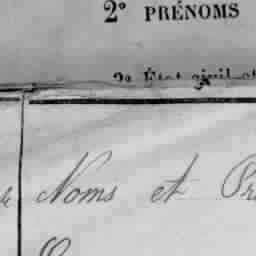 2° PRÉNOMS
2° État civil et
Noms et Pr